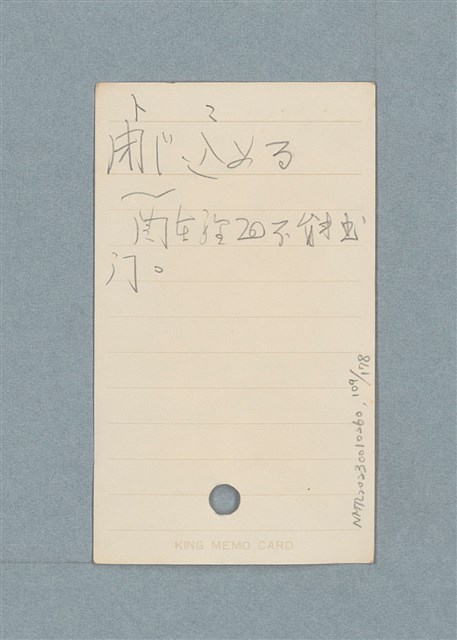 ト マ
閉じ込める
関在裡面不能出
门。
NMTL20230010260, 109/178
KING MEMO CARD